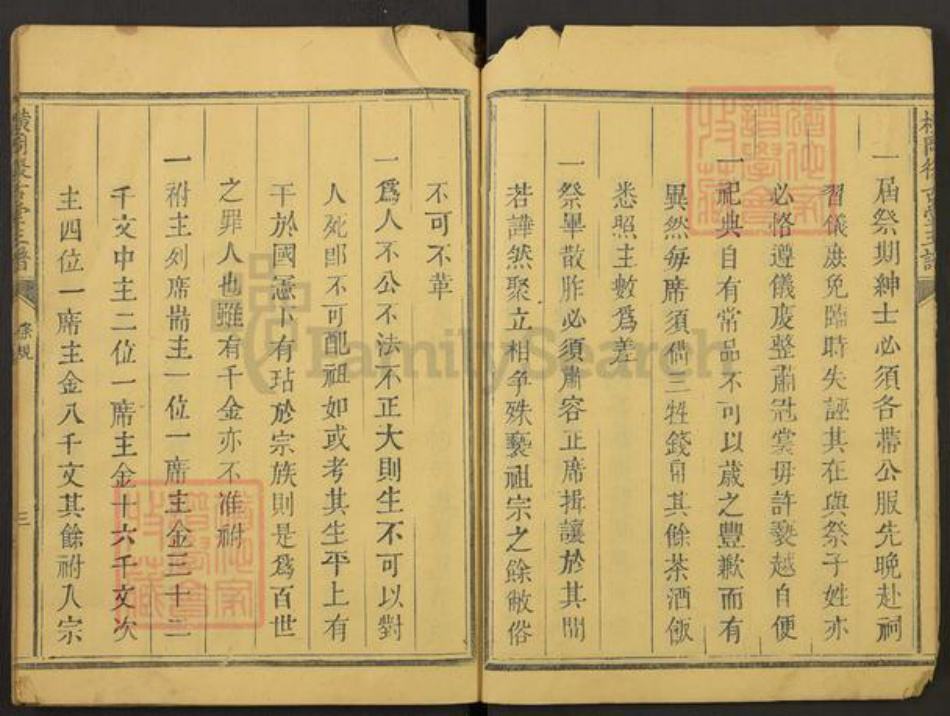 一屆祭期紳士必須各帶公服先晚赴祠
習儀庶免臨時失誣其在與祭子姓亦
必恪遵儀度整肅冠裳毋許褻越自便
一祀典自有常品不可以歲之豐歉而有
異然每席須備三牲錢帛其餘茶酒飯
悉照主數爲差
一祭畢散胙必須肅容正席揖讓於其間
若譁然聚立相爭殊褻祖宗之餘敝俗
不可不革
一爲人不公不法不正大則生不可以對
人死即不可配祖如或考其生平上有
干於國憲下有玷於宗族則是爲百世
之罪人也雖有千金亦不准祔
一祔主列席耑主一位一席主金三十二
千文中主二位一席主金十六千文次
主四位一席主金八千文其餘祔入宗
條規
三
FamilySearch